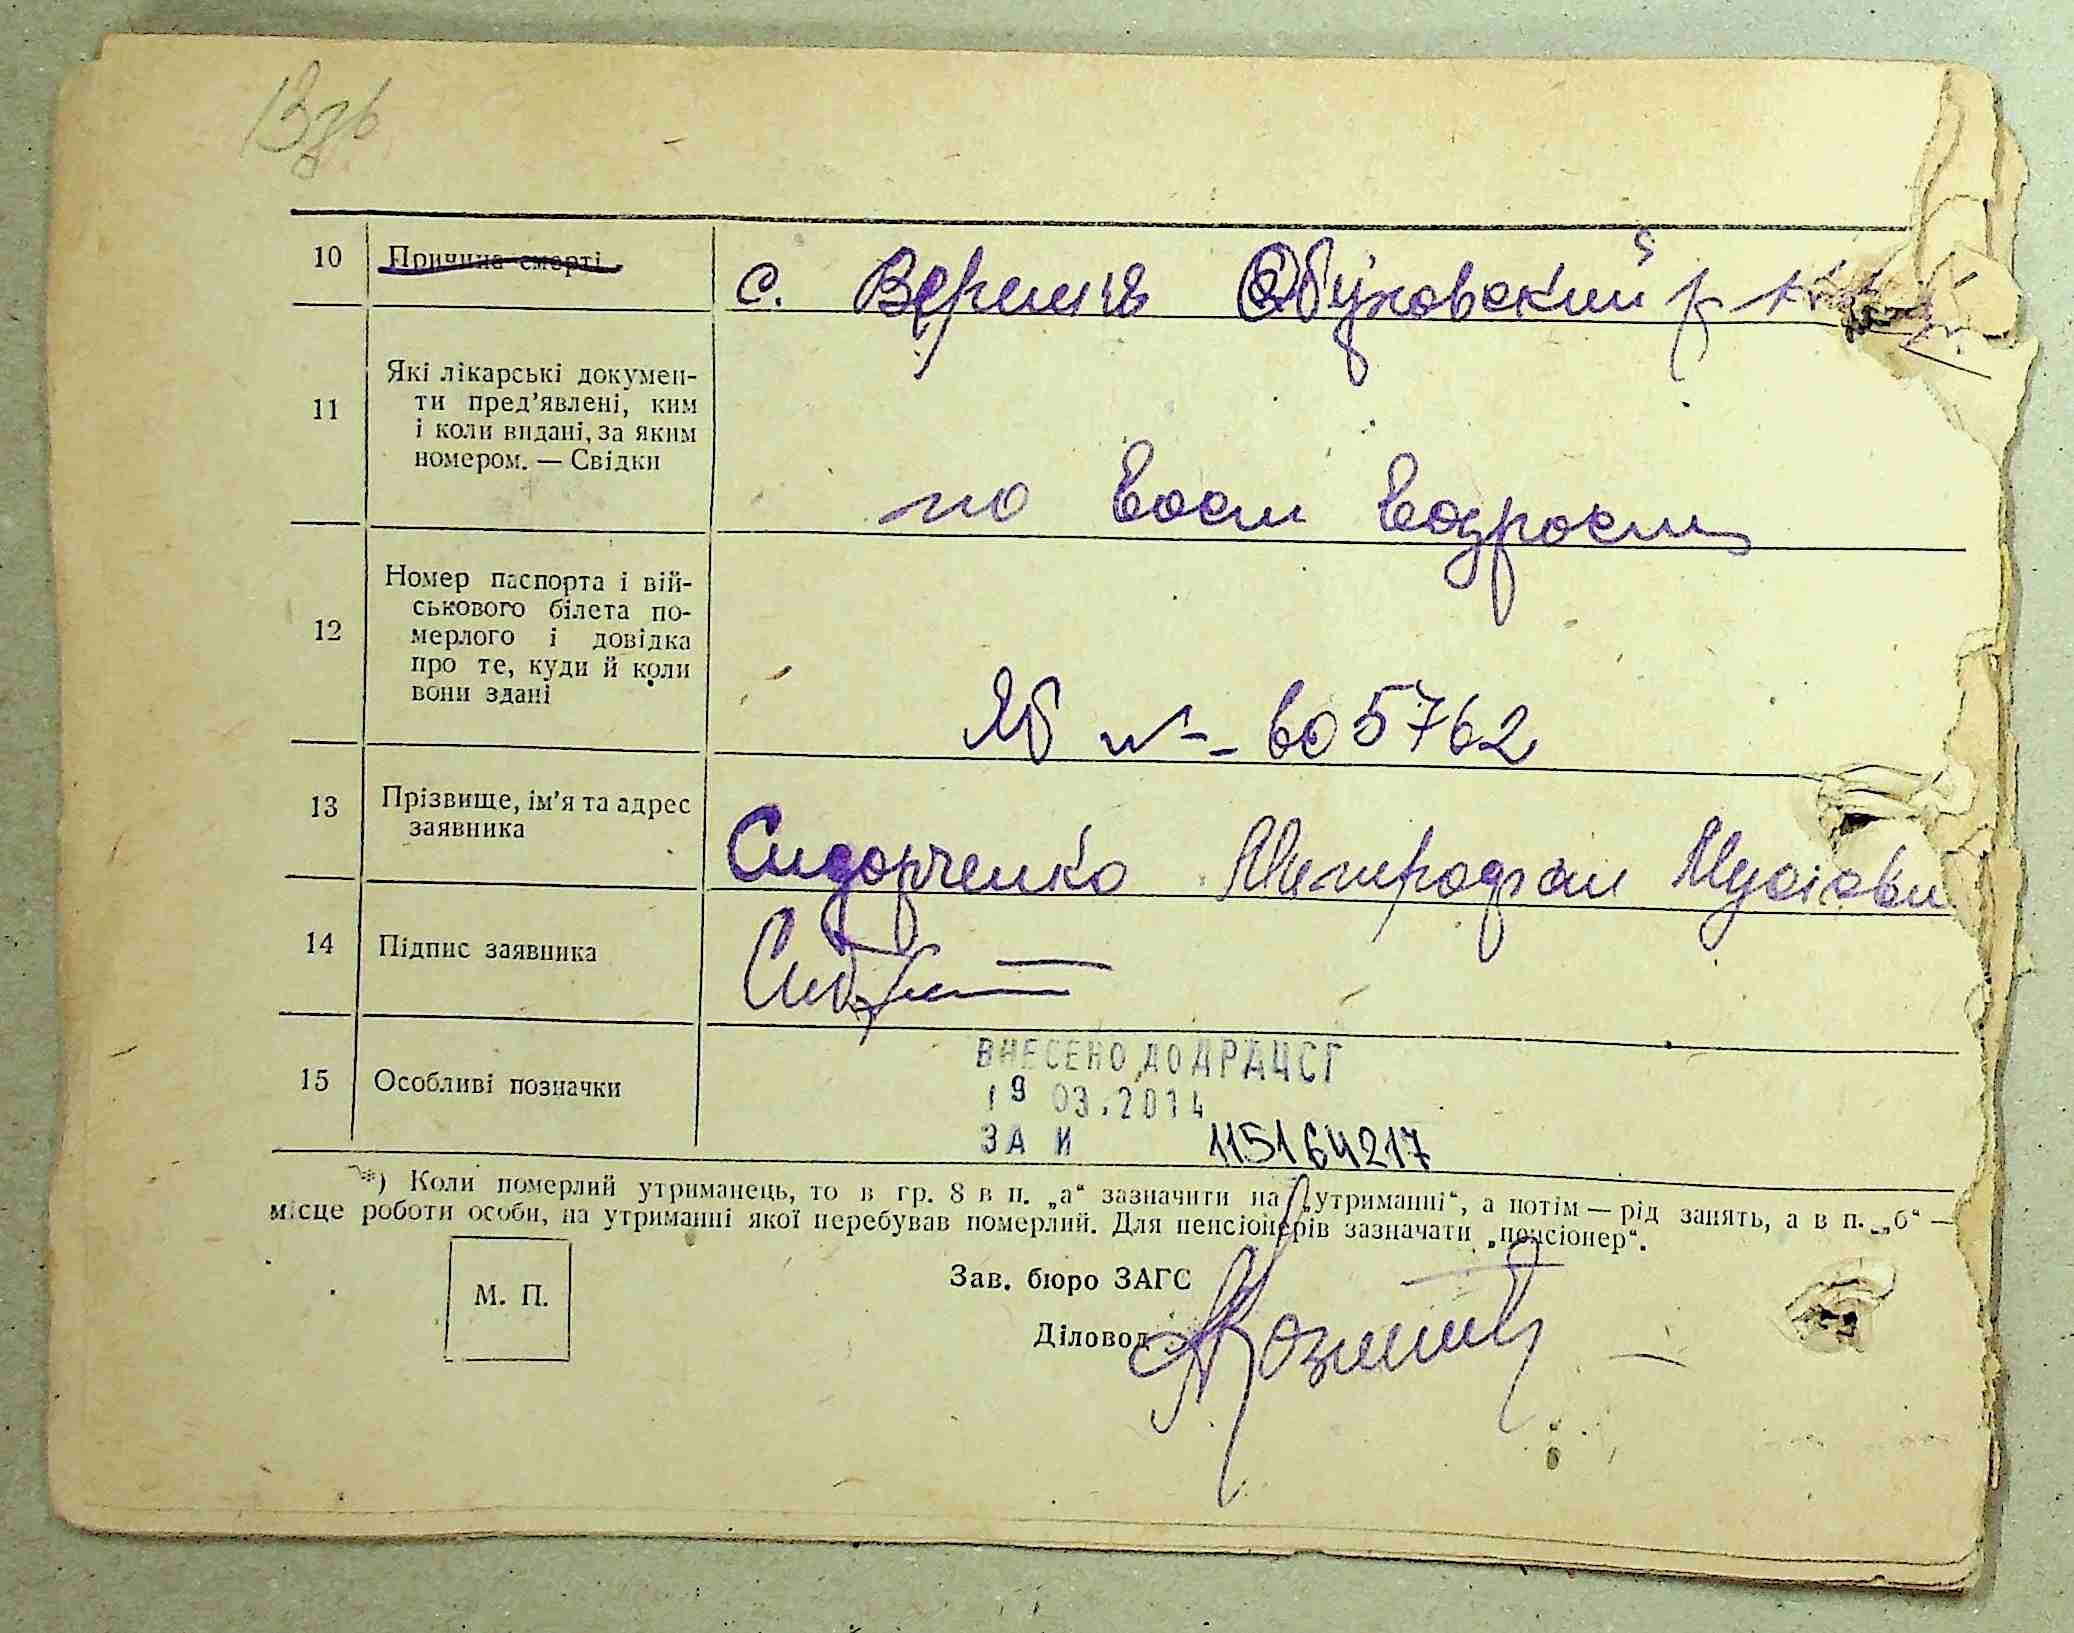 10 Причина смерті
с. Веремя Обуховский р
11 Які лікарські докумен-
ти пред'явлені, ким
і коли видані, за яким
номером. — Свідки
по восст возрост
12 Номер паспорта і вій-
ськового білета по-
мерлого і довідка
про те, куди й коли
вони здані
605762
13 Прізвище, ім'я та адрес
заявника
Сидорченко Митрофан
14 Підпис заявника
15 Особливі позначки
ВНЕСЕНО ДО ДРАЦСГ
19 03.2014
ЗА И 115164217
*) Коли померлий утриманець, то в гр. 8 в п. „а“ зазначити на „утриманні“, а потім — рід занять, а в п. „б“ —
місце роботи особи, на утриманні якої перебував померлий. Для пенсіонерів зазначати „пенсіонер“.
М. П.
Зав. бюро ЗАГС
Діловод